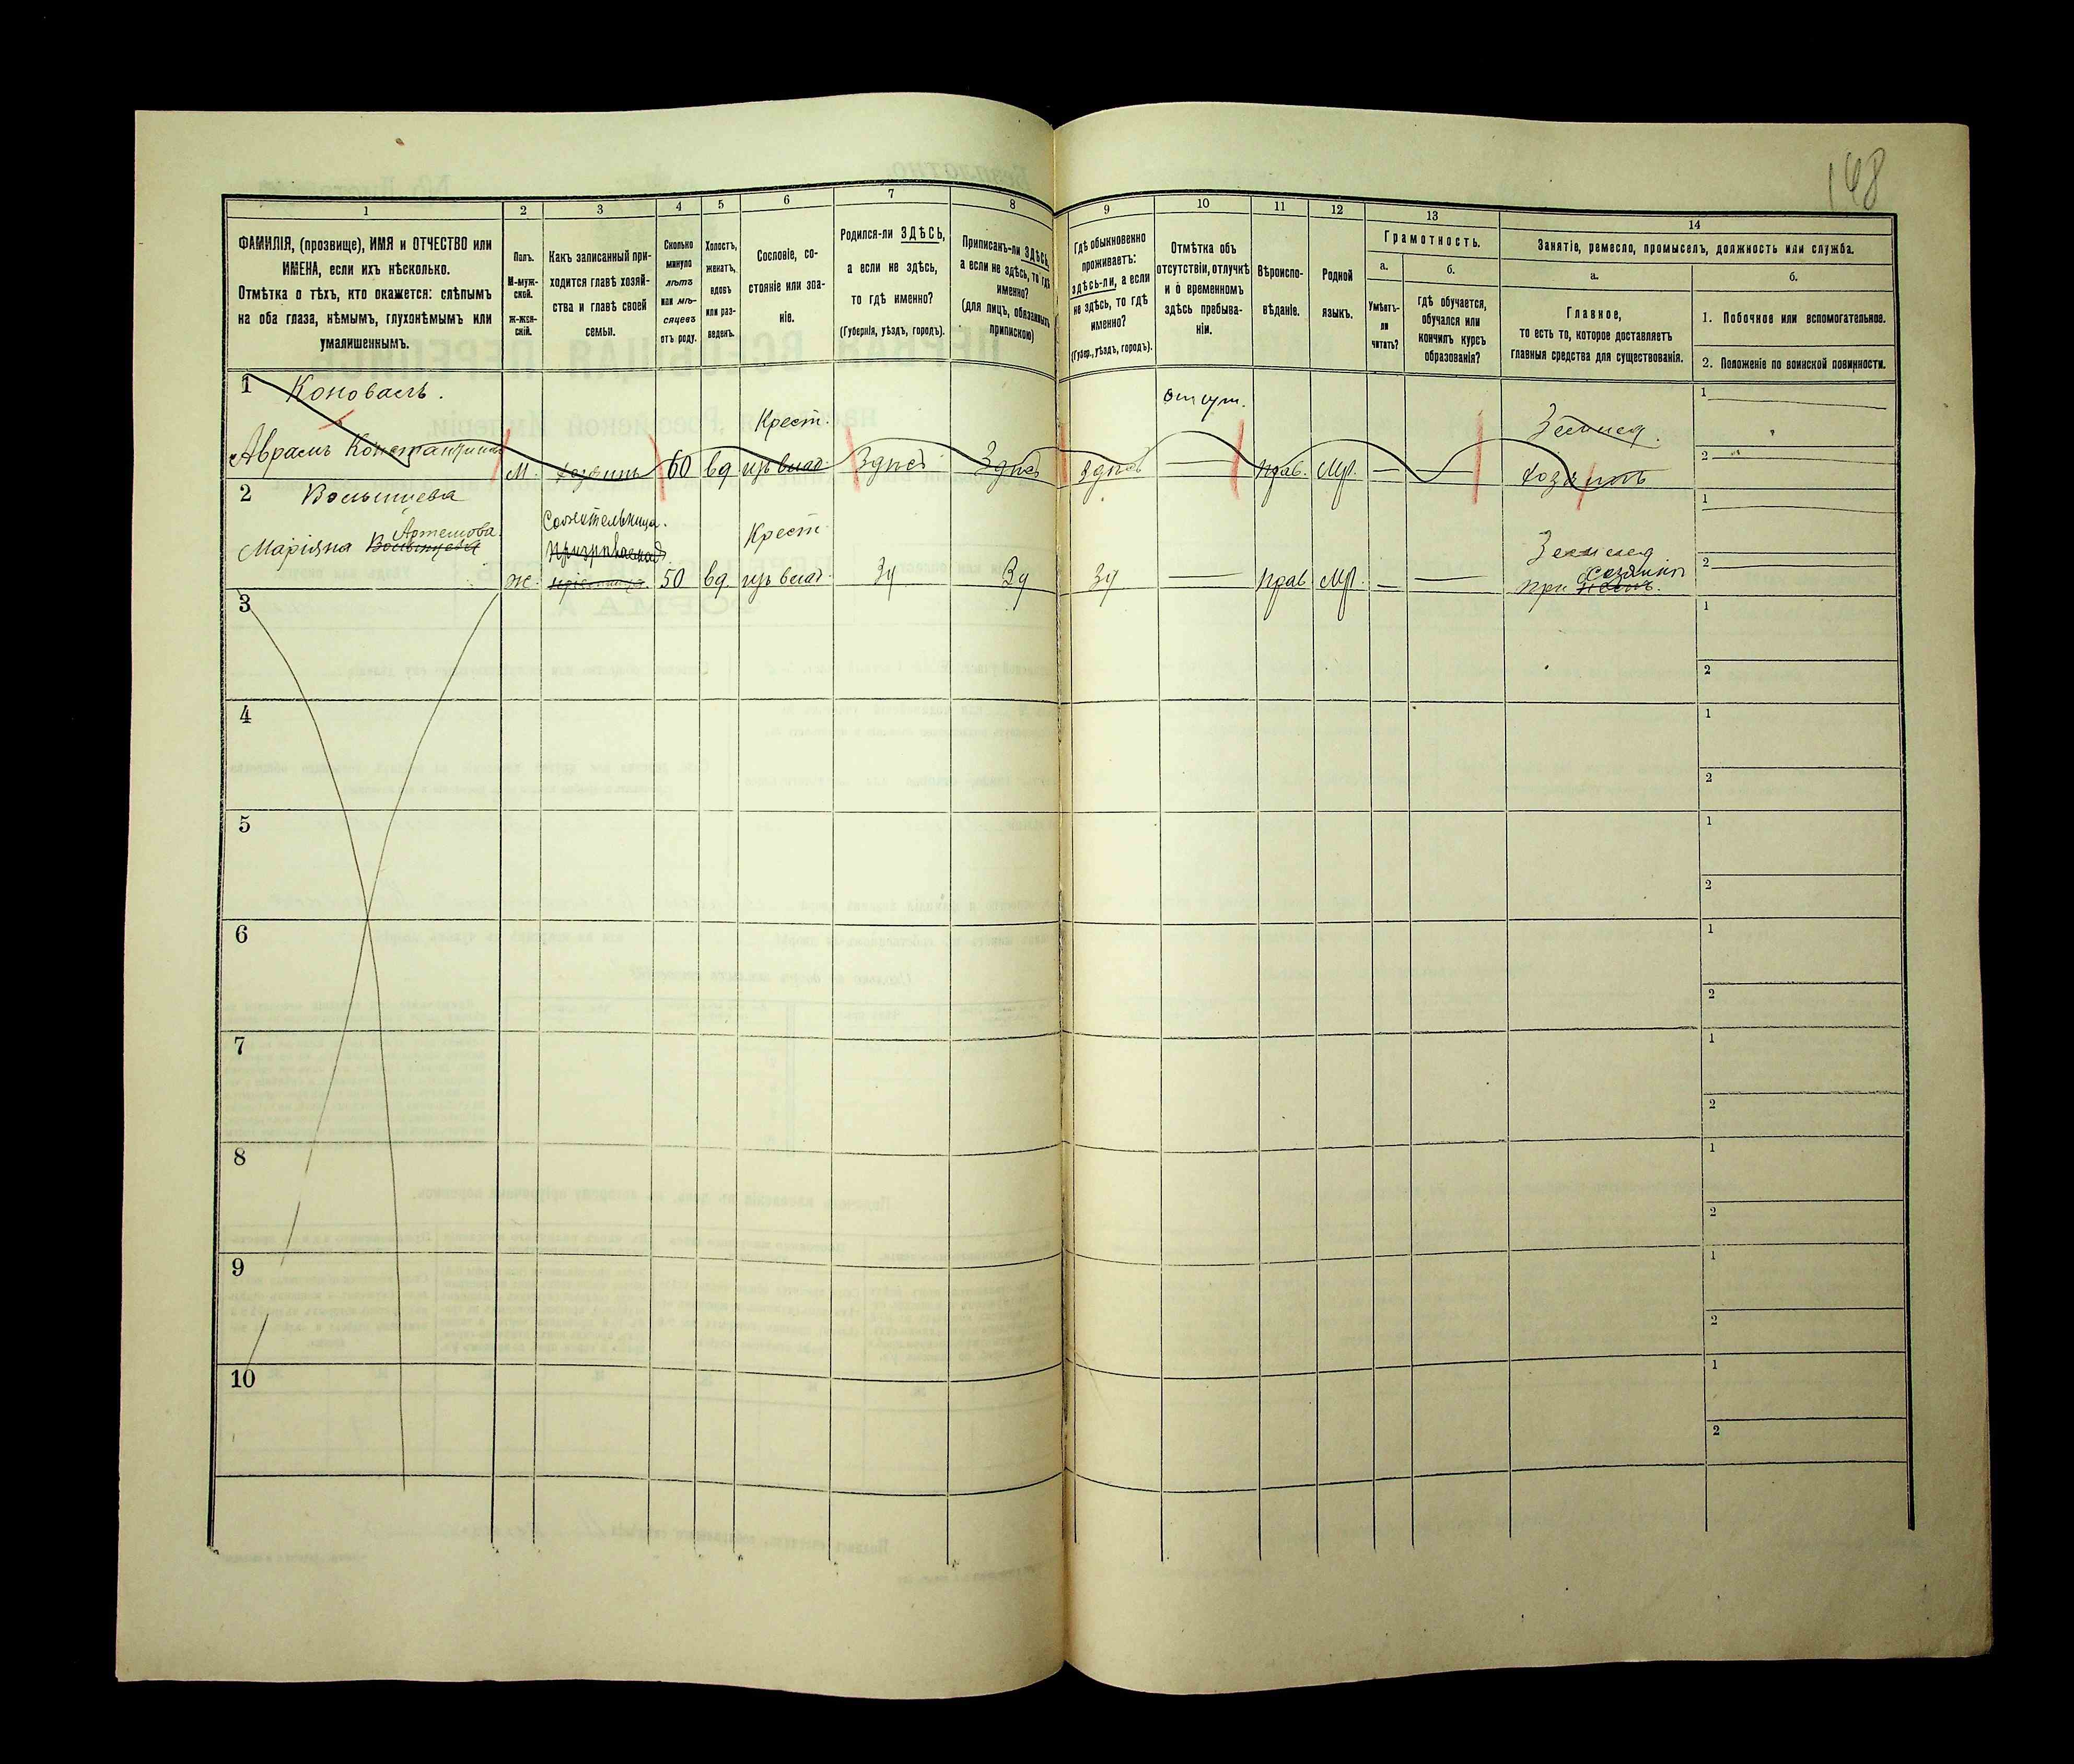 148
1 2 3 4 5 6 7 8 9 10 11 12 13 14
ФАМИЛІЯ, (прозвище), ИМЯ и ОТЧЕСТВО или
ИМЕНА, если ихъ нѣсколько.
Отмѣтка о тѣхъ, кто окажется: слѣпымъ
на оба глаза, нѣмымъ, глухонѣмымъ или
умалишеннымъ.
Полъ.
М-муж-
ской.
ж-жен-
скій.
Какъ записанный при-
ходится главѣ хозяй-
ства и главѣ своей
семьи.
Сколько
минуло
лѣтъ
или мѣ-
сяцевъ
отъ роду.
Холостъ,
женатъ,
вдовъ
или раз-
веденъ.
Сословіе, со-
стояніе или зва-
ніе.
Родился-ли ЗДѢСЬ,
а если не здѣсь,
то гдѣ именно?
(Губернія, уѣздъ, городъ).
Приписанъ-ли ЗДѢСЬ,
а если не здѣсь, то гдѣ
именно?
(для лицъ, обязанныхъ
припискою)
Гдѣ обыкновенно
проживаетъ:
здѣсь-ли, а если
не здѣсь, то гдѣ
именно?
(Губер., уѣздъ, городъ).
Отмѣтка объ
отсутствіи, отлучкѣ
и о временномъ
здѣсь пребыва-
ніи.
Вѣроиспо-
вѣданіе.
Родной
языкъ.
Грамотность.
а.
Умѣетъ-
ли
читать?
б.
гдѣ обучается,
обучался или
кончилъ курсъ
образованія?
Занятіе, ремесло, промыселъ, должность или служба.
а.
Главное,
то есть то, которое доставляетъ
главныя средства для существованія.
б.
1. Побочное или вспомогательное.
2. Положеніе по воинской повинности.
1 Коновалъ. Крест. отсут. Землед. 1
Аврамъ Константиновъ М. хозяинъ 60 вд изъ влад. Здѣсь Здѣсь Здѣсь — прав. Мр. — — хозяинъ 2
2 Сожительница. Крест. Землед. 1
Артемова хозяинѣ
Маріяна ж. 50 вд изъ влад. Зд Зд Зд — прав Мр. — — при 2
3 1
2
4 1
2
5 1
2
6 1
2
7 1
2
8 1
2
9 1
2
10 1
2